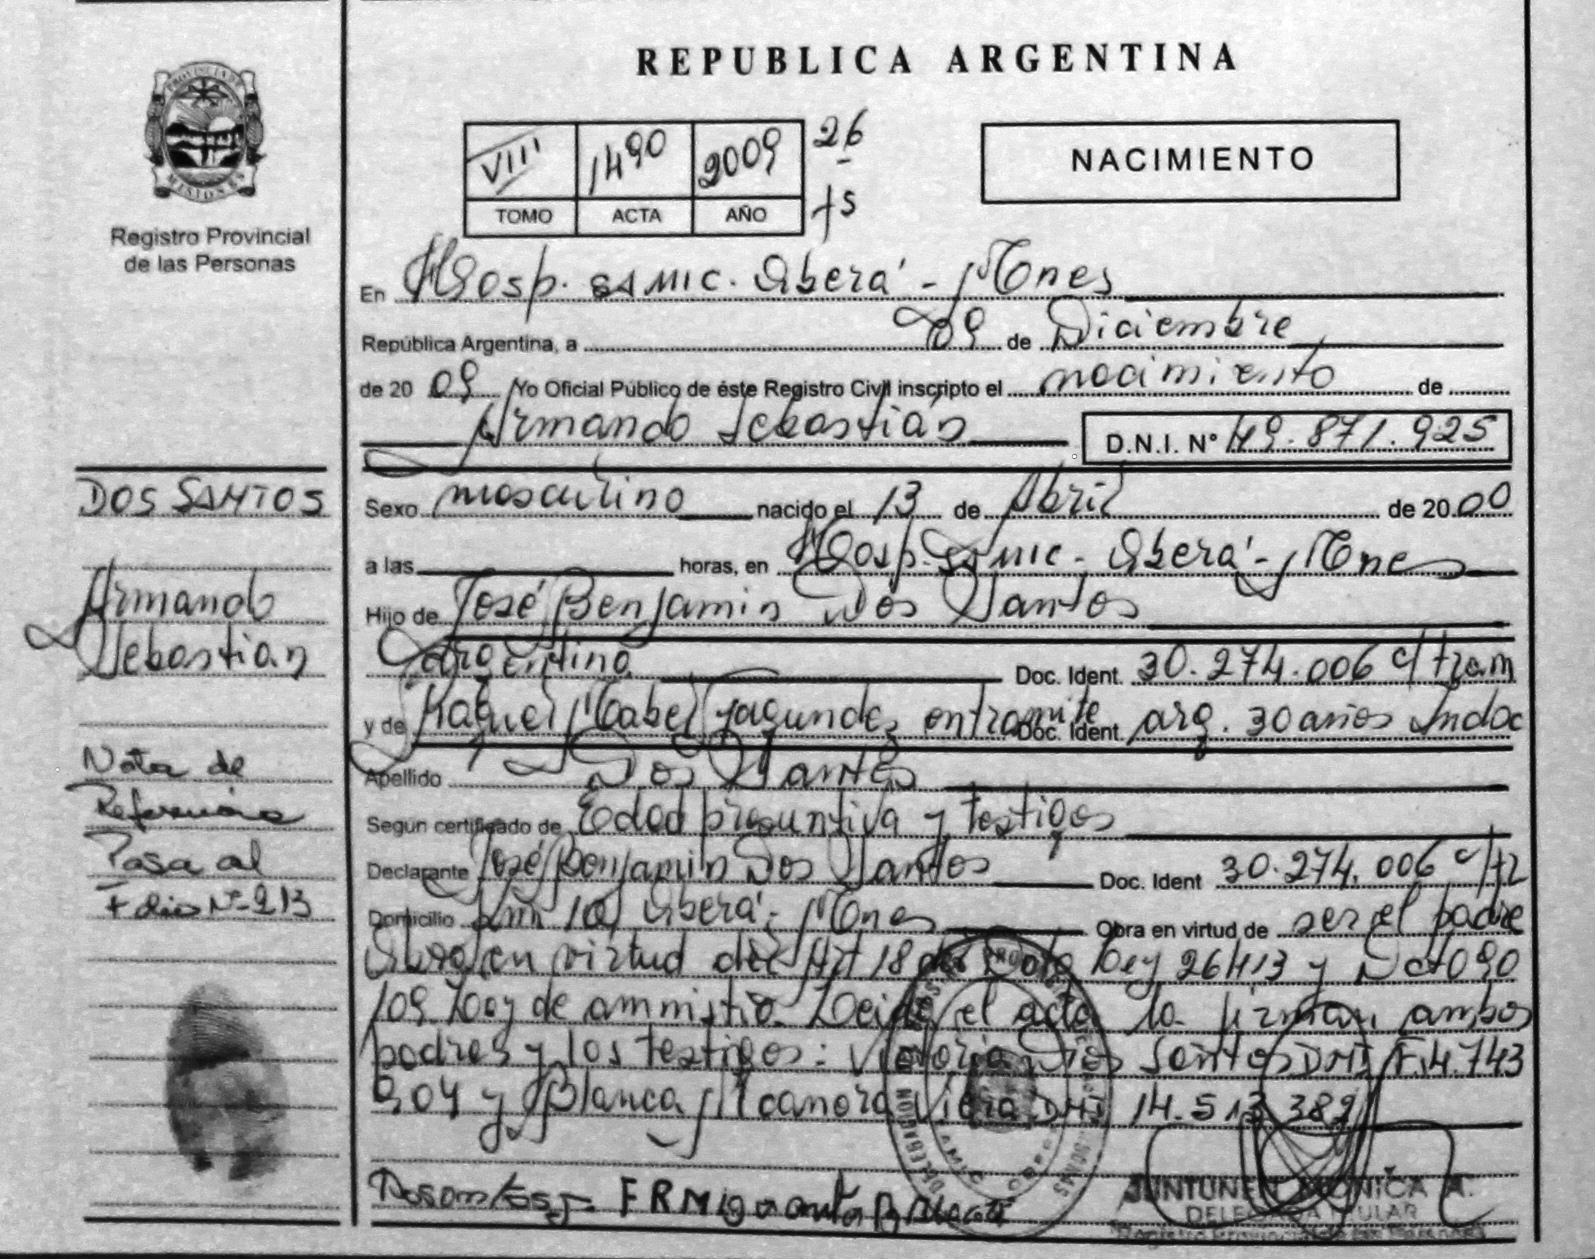 REPUBLICA ARGENTINA
PROVINCIA DE
MISIONES
Registro Provincial
de las Personas
VIII 1490 2009 26
TOMO ACTA AÑO fs
NACIMIENTO
En Hosp. SAMIC. Oberá - Mnes
República Argentina, a 09 de Diciembre
de 20 09 Yo Oficial Público de éste Registro Civil inscripto el nacimiento de
Armando Sebastián D.N.I. N° 49.871.925
DOS SANTOS
Armando
Sebastián
Nota de
Referencia
Pasa al
Folio Nº 213
Sexo masculino nacido el 13 de Abril de 20 00
a las horas, en Hosp. SAMIC - Oberá - Mnes
Hijo de José Benjamin Dos Santos
argentino Doc. Ident. 30.274.006 c/tram
y de Raquel Mabel Fagundes en tramite Doc. Ident. arg. 30 años Indoc
Apellido Dos Santos
Según certificado de Edad presuntiva y testigos
Declarante José Benjamin Dos Santos Doc. Ident 30.274.006 c/tr
Domicilio Km 10 Oberá - Mnes Obra en virtud de ser el padre
Obra en virtud del Art 18 de Ley 26413 y Dcto 90
109 de amnistia. Leida el acta la firman ambos
padres y los testigos: Victoria Dos Santos DNI F.4.743
904 y Blanca Vieira DNI 14.513.389
JUNTUNEN MONICA A.
DELEGADA TITULAR
Registro Provincial de las Personas